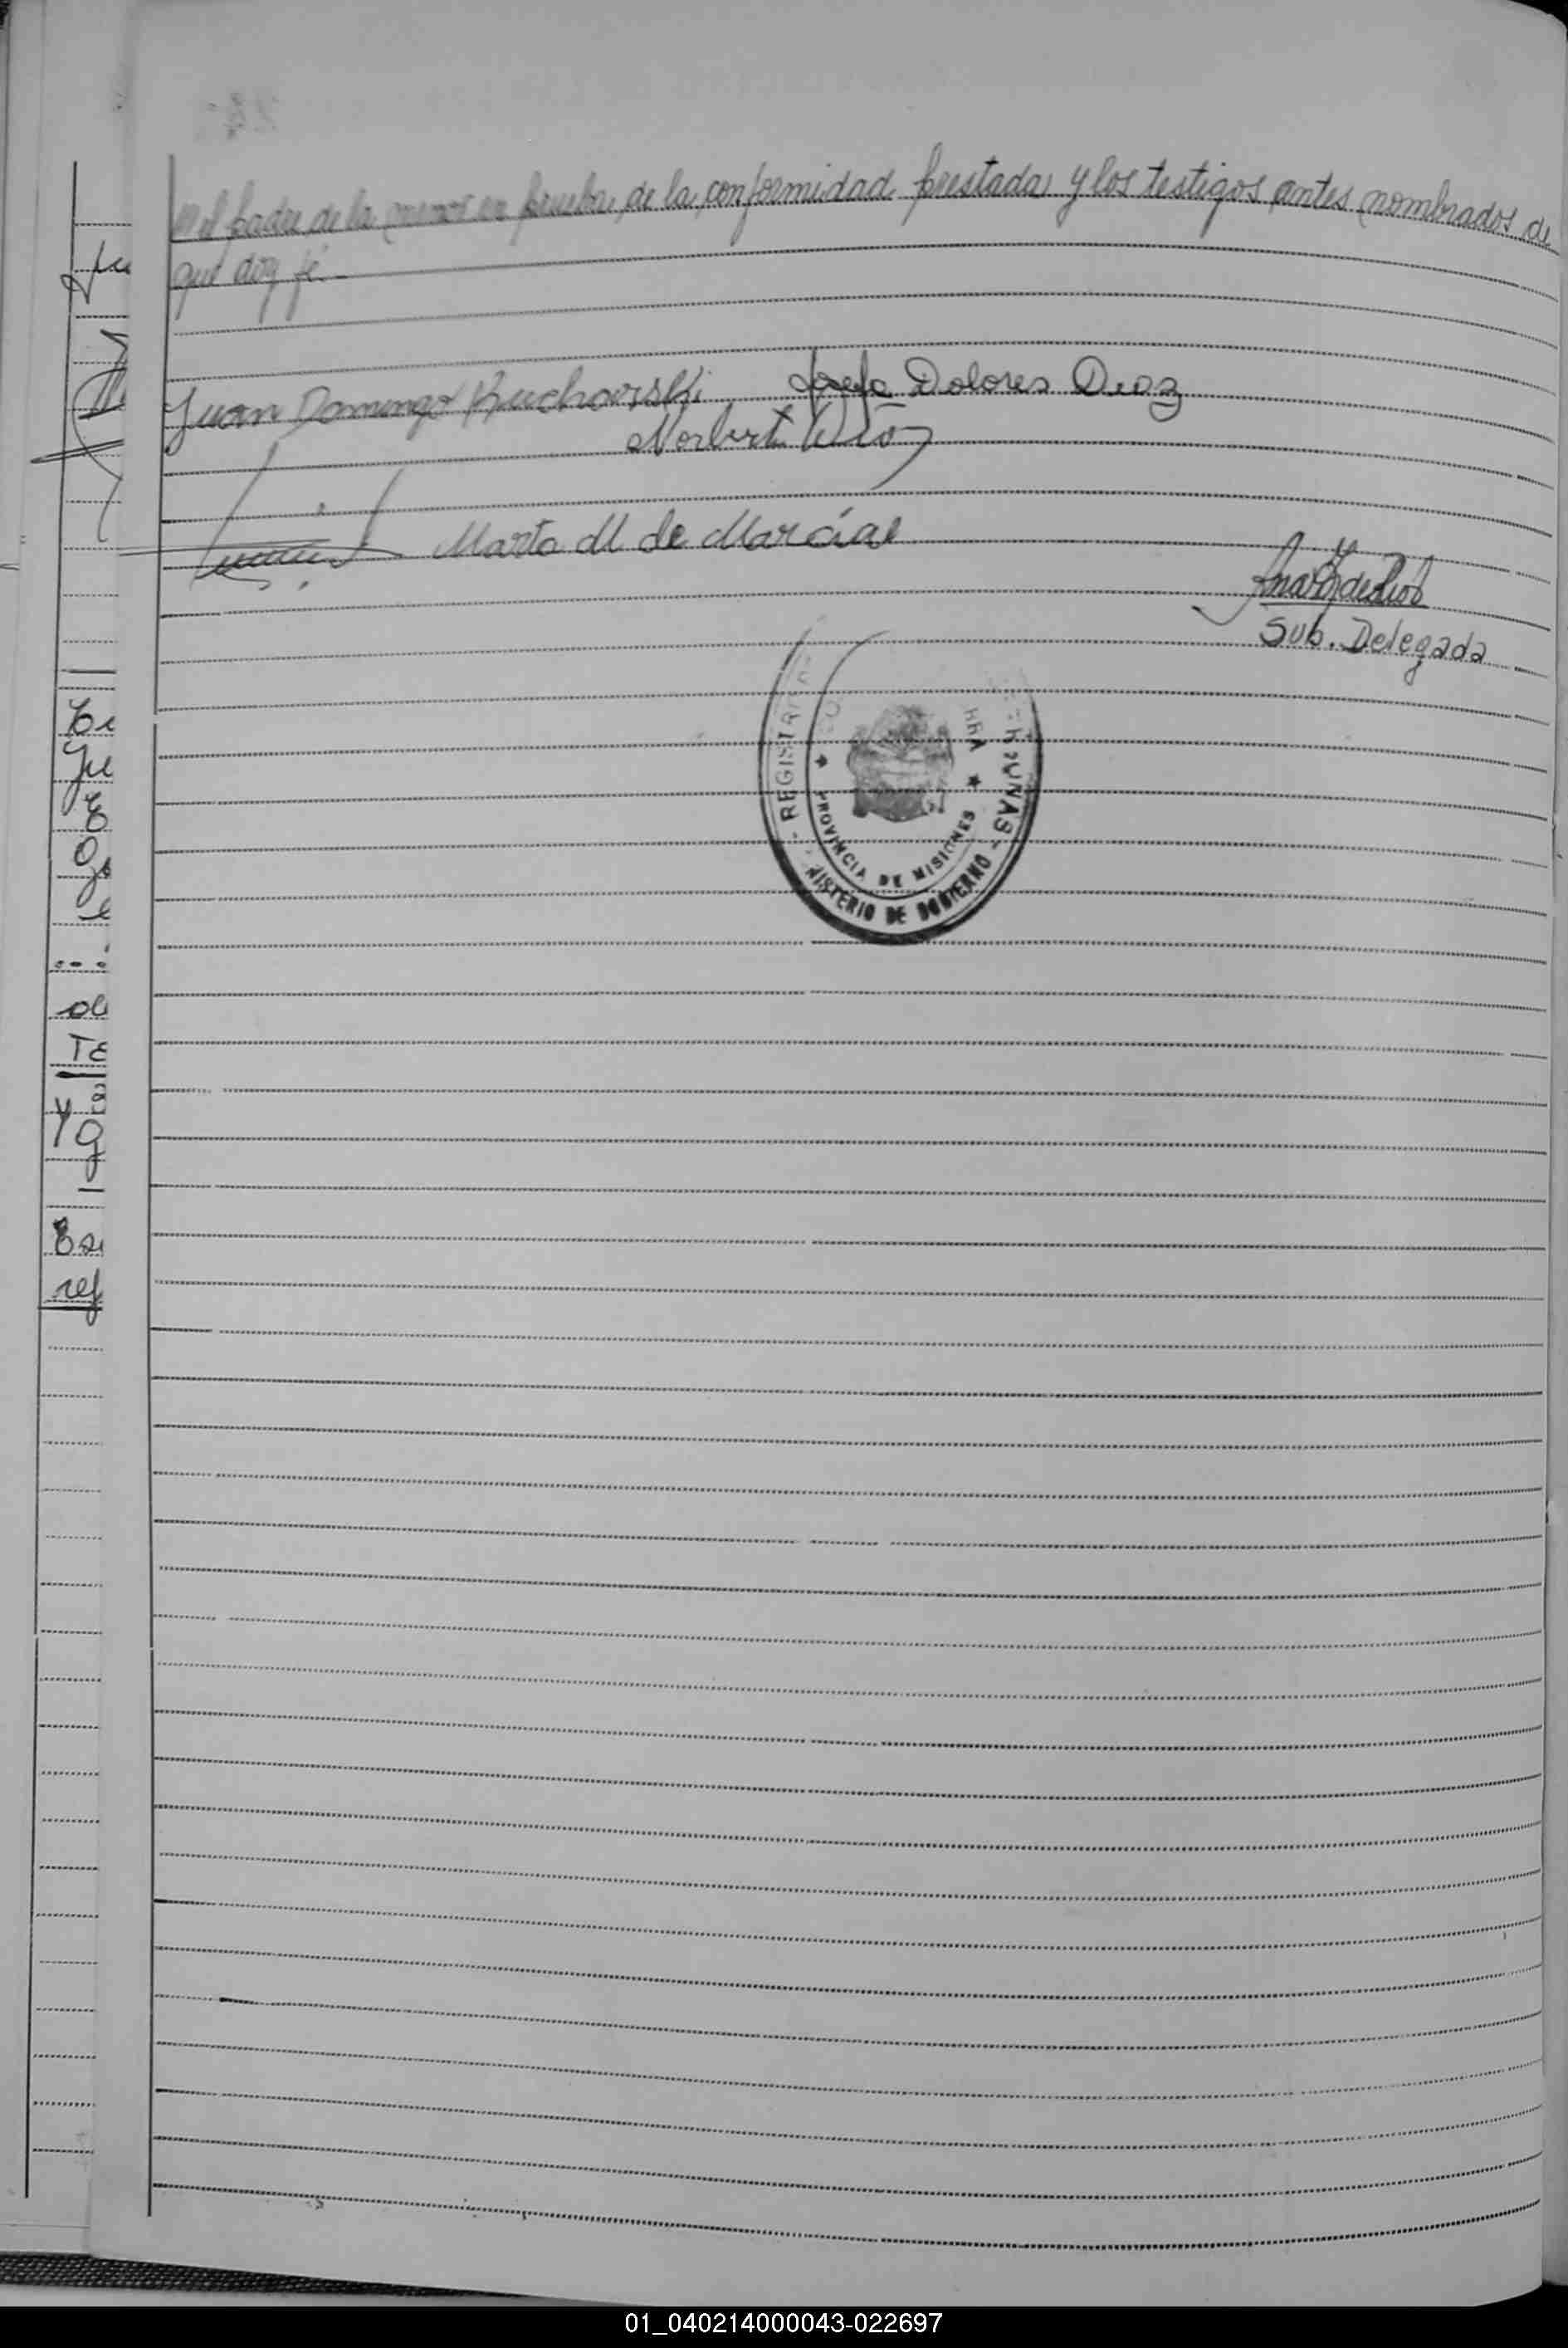 el padre de la menor en prueba de la conformidad prestada y los testigos antes nombrados de
que doy fé.-
Juan Domingo Kucharski Josefa Dolores Diaz
Norberto Diaz
Marta M de Marcial
Sub. Delegada
- REGISTRO
PERSONAS -
★ PROVINCIA DE MISIONES ★
NISTERIO DE GOBIERNO
Ju
Ju
ol
Te
Y
ref
01_040214000043-022697